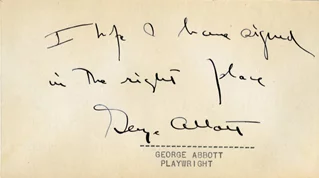 I hope I have signed
in the right place
George Abbott
GEORGE ABBOTT
PLAYWRIGHT